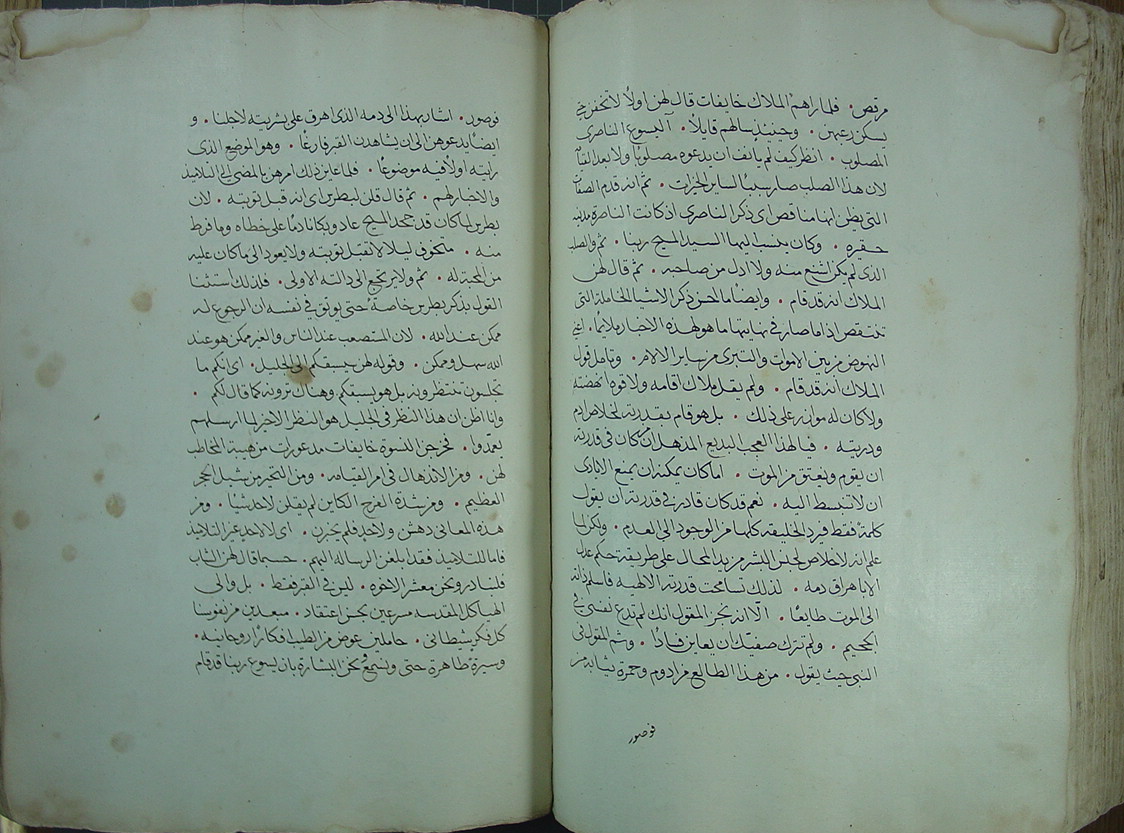 مرقص. فلما راهم الملاك خايفات قال لهن اولاً لا تخفن كي
يسكن رعبهن. وحينئذ سالهم قايلاً. آ ليسوع الناصري
المصلوب. انظر كيف لم يانف ان يدعوه مصلوبا ولا بعد القيام
لان هذا الصلب صار سببا لساير الخيرات. ثم انه قدم الصفات
التي يظن انها مناقص اي ذكر الناصري اذ كانت الناصرة مدينه
حقيره. وكان ينسب اليها السيد المسيح ربنا. ثم والصلب
الذي لم يكن اشنع منه ولا اذل من صاحبه. ثم قال لهن
الملاك انه قد قام. وايضا ما احسن ذكر الاشيا الخاملة التي
تنتقص اذا ما صار في نهايتها ما هو لهذه الاخبار ملايما. اي
النهوض من بين الاموات والتبري من ساير الالام. وتامل قول
الملاك انه قد قام. ولم يقل ملاك اقامه ولا قوه انهضته
ولا كان له موازر على ذلك. بل هو قام بقدرته لخلاص ادم
وذريته. فيا لهذا العجب البديع المذهل ان كان في قدرته
ان يقوم ويعتق من الموت. اما كان يمكنه ان يمنع الايادي
ان لا تنبسط اليه. نعم قد كان قادر في قدرته ان يقول
كلمة فقط فيرد الخليقه كلها من الوجود الى العدم. ولكن لما
علم انه لا خلاص لجنس البشر من يد المحال على طريقة تحكم عدل
الا باهراق دمه. لذلك تسامحت قدرته الالهيه فاسلم ذاته
الى الموت طايعا. الا انه نجز المقول انك لم تدع نفسي في
الجحيم. ولم تترك صفيّك ان يعاين فسادًا. وتم المقول في
النبي حيث يقول. من هذا الطالع من ادوم وحمرة ثيابه من
فوصور
فوصور. اشار بهذا الى دمه الذي اهرق على بشريته لاجلنا. و
ايضا يدعوهن الى ان يشاهدن القبر فارغا. وهو الموضع الذي
راينه اولا فيه موضوعا. فلما عاين ذلك امرهن بالمضي الى التلاميذ
والاخبار لهم. ثم قال قلن لبطرس اي انه قبل توبته. لان
بطرس لما كان قد جحد المسيح عاد وبكا نادما على خطاه وما فرط
منه. متخوف ليلا لا تقبل توبته ولا يعود الى ما كان عليه
من المحبة له. ثم ولا يرتجع الى دالته الاولى. فلذلك استثنا
القول بذكر بطرس خاصة حتى يوثق في نفسه ان الرجوع له
ممكن عند الله. لان المستصعب عند الناس والغير ممكن هو عند
الله سهل وممكن. وقوله لهن يسبقكم الى الجليل. اي انكم ما
تجلسون تنتظرونه بل هو يسبقكم وهناك ترونه كما قال لكم.
وانا اظن ان هذا النظر في الجليل هو النظر الاخر لما ارسلهم
يعمدوا. فخرجن النسوة خايفات مدعورات من هيبة المخاطب
لهن. ومن الانذهال في امر القيامه. ومن التحير من شيل الحجر
العظيم. ومن شدة الفرح الكاين لم يقلن لاحد شيا. ومن
هذه المعاني دهش ولاحد فلم يخبرن. اي لاحد غير التلاميذ
فاما للتلاميذ فقد ابلغن الرسالة اليهم. حسبما قال لهن الشاب
فلنبادر نحن معشر الاخوه. ليس في القبر فقط. بل والى
الهياكل المقدسه مسرعين بحسن اعتقاد. مبعدين من نفوسنا
كل فكر شيطاني. حاملين عوض من الطيب افكارا روحانيه.
وسيرة طاهرة حتى ونسمع نحن البشارة بان يسوع ربنا قد قام